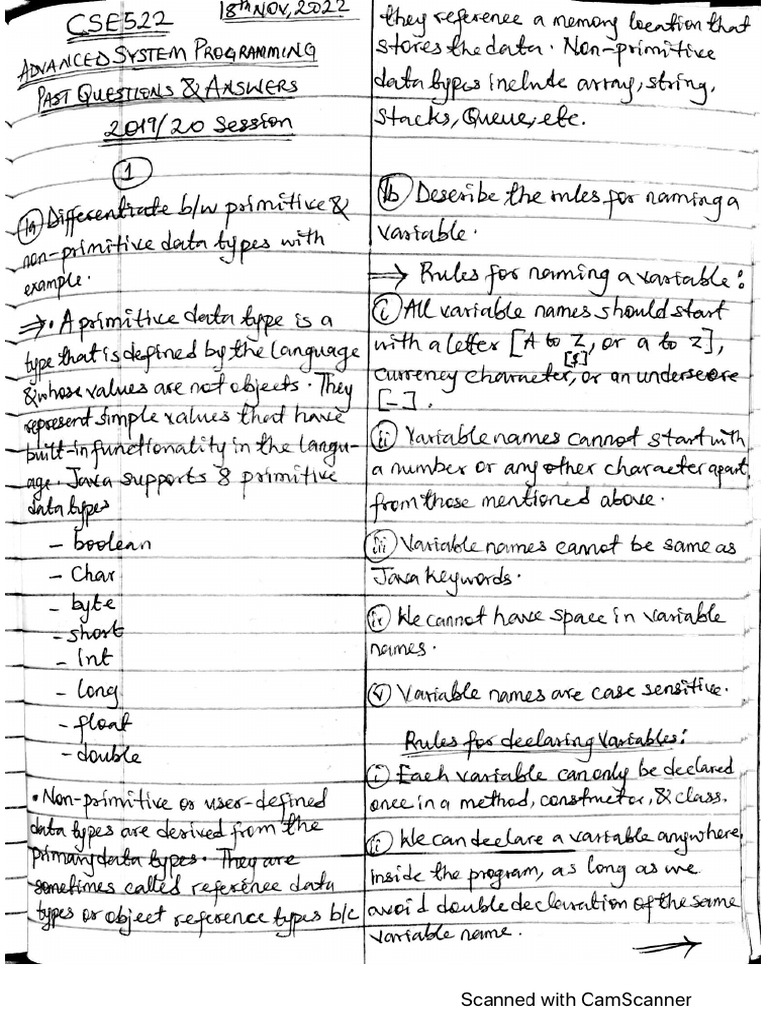 CSE522
18th NOV, 2022
ADVANCED SYSTEM PROGRAMMING
PAST QUESTIONS & ANSWERS
2019/20 Session
1
1a Differentiate b/w primitive &
non-primitive data types with
example.
⇒ • A primitive data type is a
type that is defined by the language
& whose values are not objects. They
represent simple values that have
built-in functionality in the langu-
age. Java supports 8 primitive
data types
– boolean
– Char
– byte
– short
– int
– long
– float
– double
• Non-primitive or user-defined
data types are derived from the
primary data types. They are
sometimes called reference data
types or object reference types b/c
they reference a memory location that
stores the data. Non-primitive
data types include array, string,
stacks, Queue, etc.
1b Describe the rules for naming a
variable.
⇒ Rules for naming a variable:
i All variable names should start
with a letter [A to Z, or a to z],
currency character [$], or an underscore
[_].
ii Variable names cannot start with
a number or any other character apart
from those mentioned above.
iii Variable names cannot be same as
Java keywords.
iv We cannot have space in variable
names.
v Variable names are case sensitive.
Rules for declaring Variables:
i Each variable can only be declared
once in a method, constructor, & class.
ii We can declare a variable anywhere,
inside the program, as long as we
avoid double declaration of the same
variable name.
→
Scanned with CamScanner